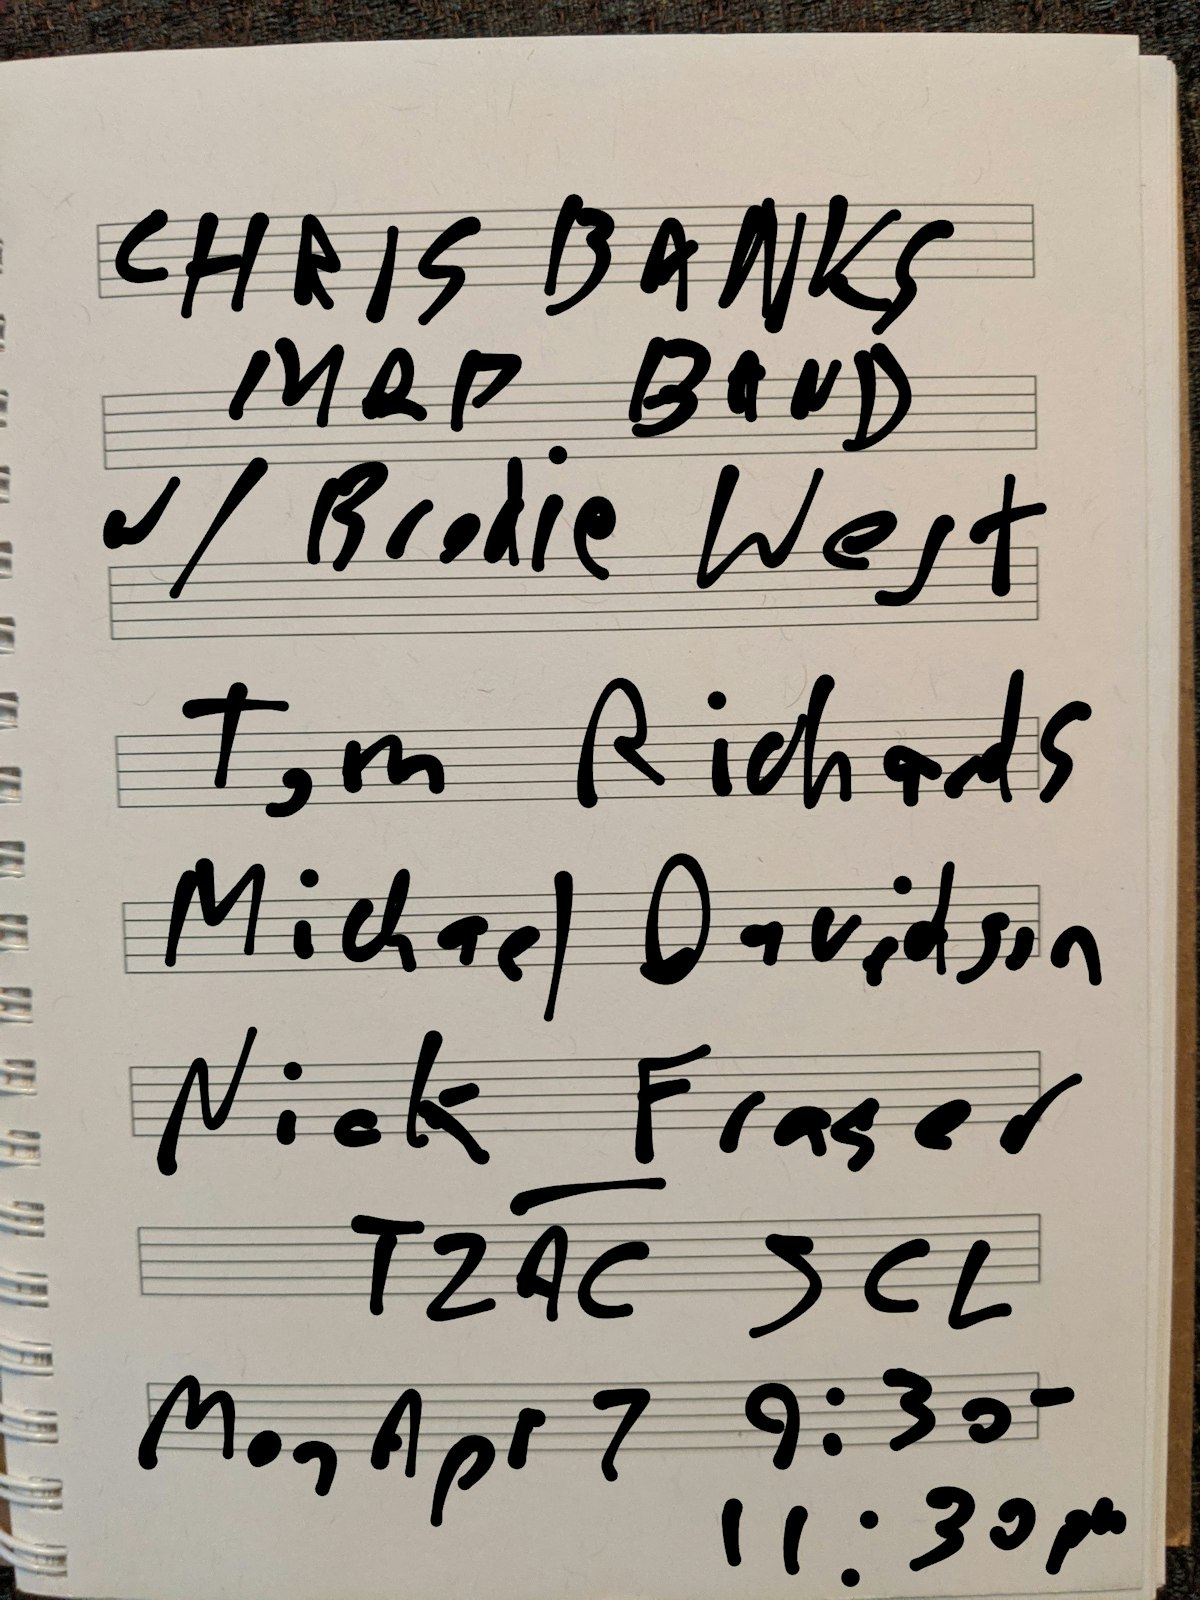 CHRIS BANKS
MAP BAND
w/ Brodie West
Tom Richards
Michael Davidson
Nick Fraser
TZAC SCL
Mon Apr 7 9:30-
11:30pm